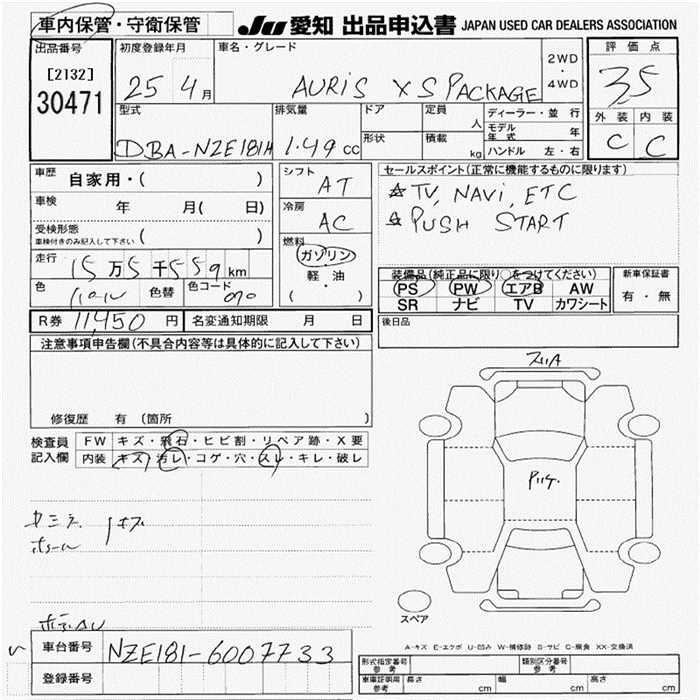 車内保管・守衛保管
JU 愛知 出品申込書 JAPAN USED CAR DEALERS ASSOCIATION
出品番号 初度登録年月 車名・グレード 評価点
[2132] 2WD
30471 25 4月 AURIS XS PACKAGE ・ 3.5
4WD
型式 排気量 ドア 定員 ディーラー・並行 外装 内装
人 モデル年式 年 C C
DBA-NZE181H 1.49 cc 形状 積載 kg ハンドル 左・右
車歴 自家用・( ) シフト AT セールスポイント(正常に機能するものに限ります)
☆ TV, NAVI, ETC
車検 年 月( 日) 冷房 AC ☆ PUSH START
受検形態 ( )
車検付きのみ記入して下さい
燃料
ガソリン
走行 15万5千559km 軽油 装備品(純正品に限り○をつけてください) 新車保証書
色 パール 色替 色コード 070 ( ・ ) PS PW エアB AW 有・無
SR ナビ TV カワシート
R券 11,450 円 名変通知期限 月 日 後日品
注意事項申告欄(不具合内容等は具体的に記入して下さい)
修復歴 有 (箇所 )
検査員 FW キズ・飛石・ヒビ割・リペア跡・X要
記入欄 内装 キズ・汚レ・コゲ・穴・スレ・キレ・破レ
スリA
スペア
車台番号 NZE181-6007733
登録番号
A-キズ E-エクボ U-凹み W-補修跡 S-サビ C-腐食 XX-交換済
形式指定番号 参考 類別区分番号 参考
車庫証明用 参考 長さ cm 幅 cm 高さ cm